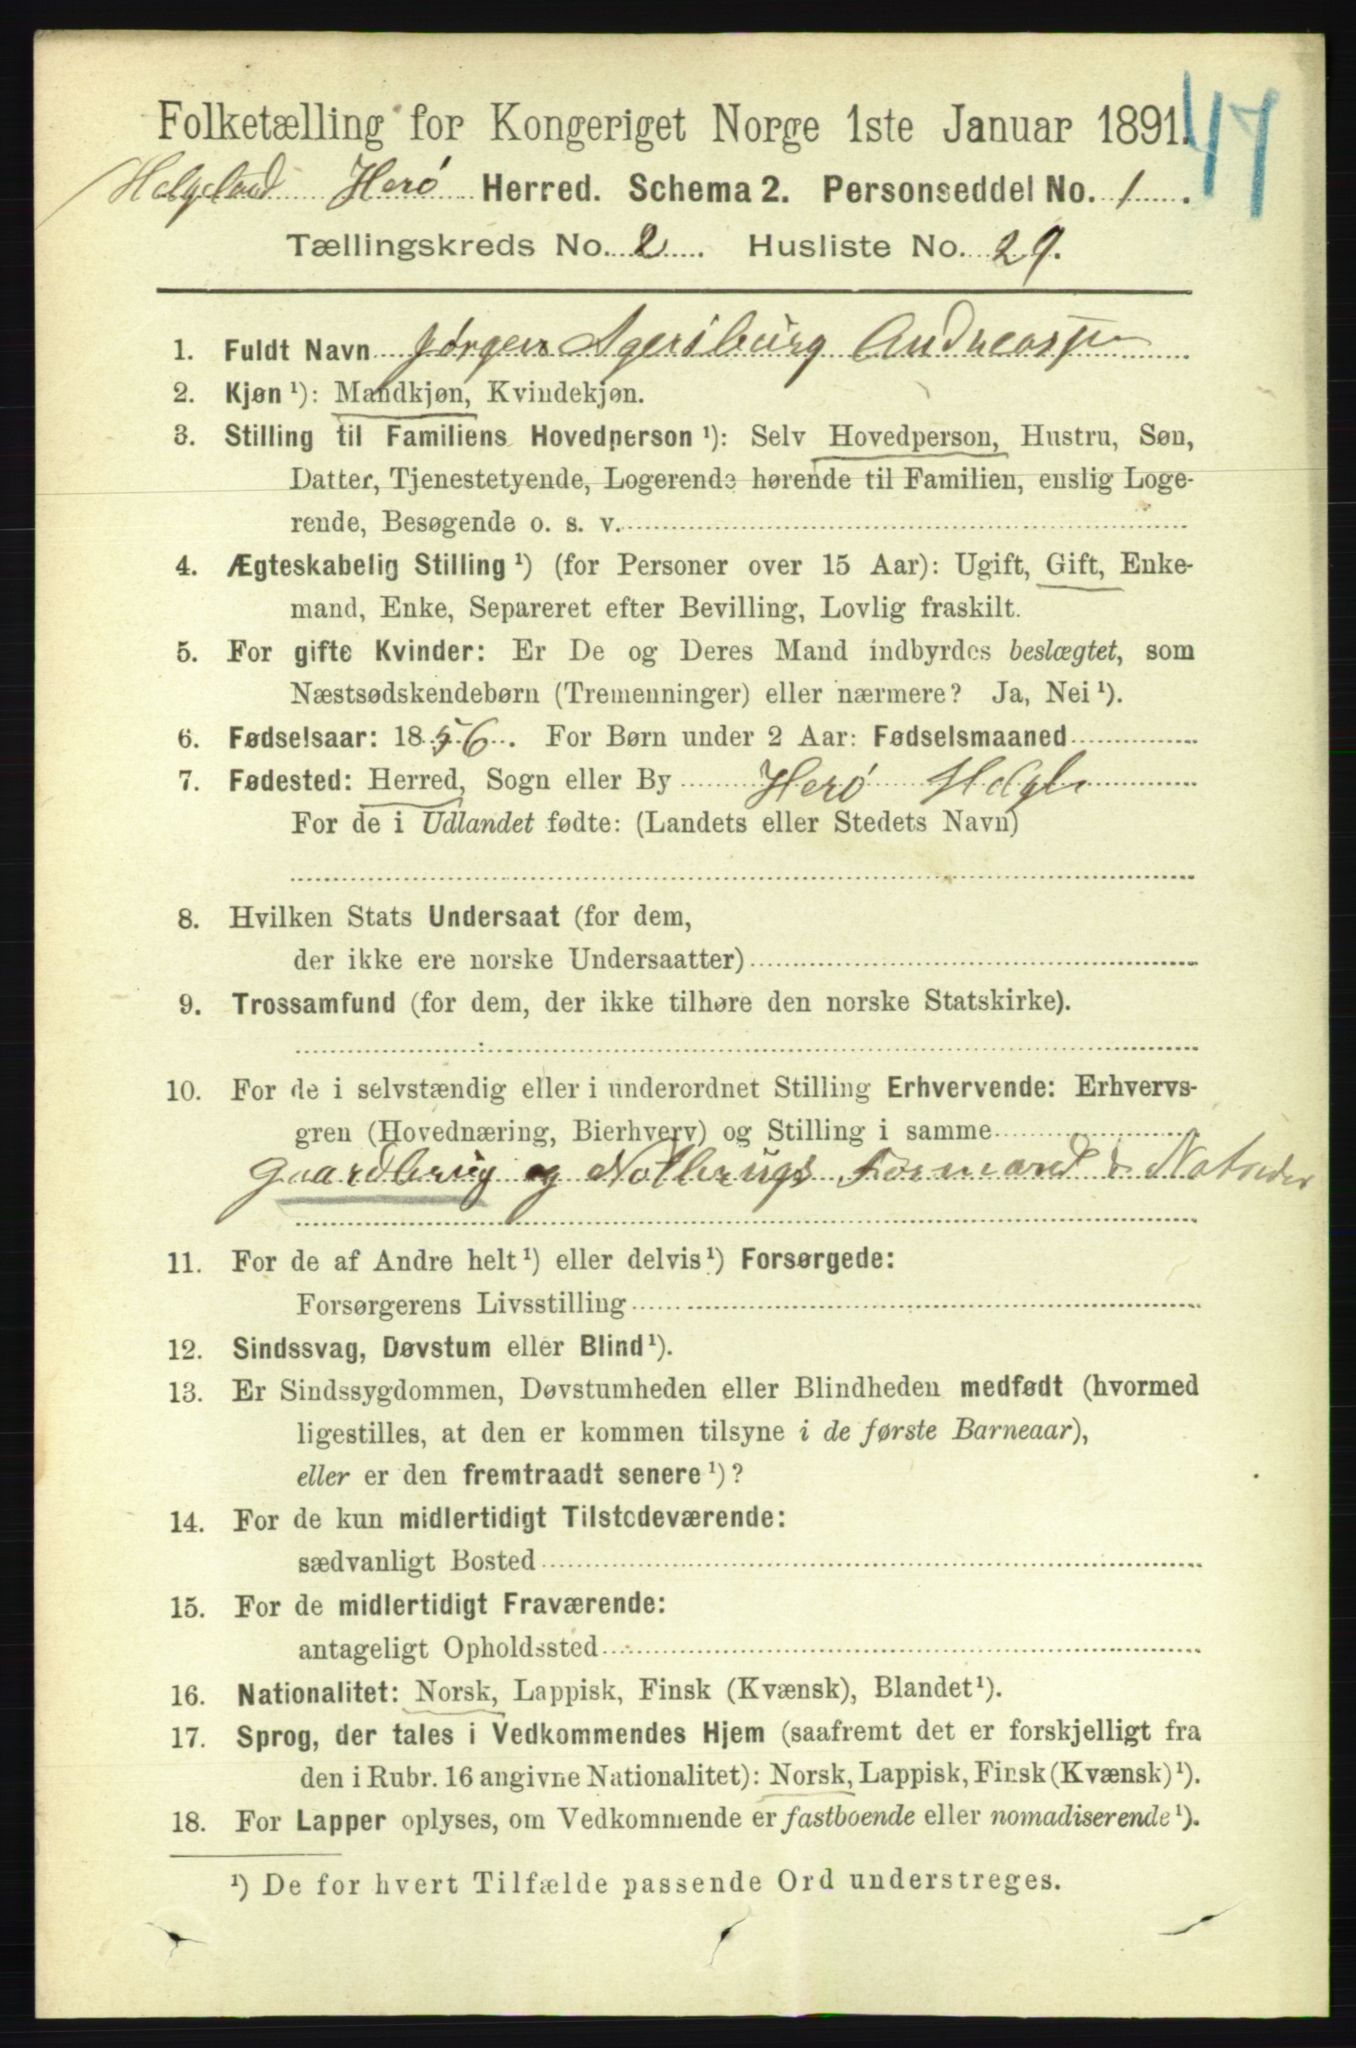 Folketælling for Kongeriget Norge 1ste Januar 1891.
47
Helgeland Herø Herred. Schema 2. Personseddel No. 1.
Tællingskreds No. 2. Husliste No. 29.
1. Fuldt Navn Jørgen Agersburg Andreassen
2. Kjøn ¹): Mandkjøn, Kvindekjøn.
3. Stilling til Familiens Hovedperson ¹): Selv Hovedperson, Hustru, Søn,
Datter, Tjenestetyende, Logerende hørende til Familien, enslig Loge-
rende, Besøgende o. s. v.
4. Ægteskabelig Stilling ¹) (for Personer over 15 Aar): Ugift, Gift, Enke-
mand, Enke, Separeret efter Bevilling, Lovlig fraskilt.
5. For gifte Kvinder: Er De og Deres Mand indbyrdes beslægtet, som
Næstsødskendebørn (Tremenninger) eller nærmere? Ja, Nei ¹).
6. Fødselsaar: 1856. For Børn under 2 Aar: Fødselsmaaned
7. Fødested: Herred, Sogn eller By Herø Helgl
For de i Udlandet fødte: (Landets eller Stedets Navn)
8. Hvilken Stats Undersaat (for dem,
der ikke ere norske Undersaatter)
9. Trossamfund (for dem, der ikke tilhøre den norske Statskirke).
10. For de i selvstændig eller i underordnet Stilling Erhvervende: Erhvervs-
gren (Hovednæring, Bierhverv) og Stilling i samme
Gaardbrug og Notbrugs Formand &
11. For de af Andre helt ¹) eller delvis ¹) Forsørgede:
Forsørgerens Livsstilling
12. Sindssvag, Døvstum eller Blind ¹).
13. Er Sindssygdommen, Døvstumheden eller Blindheden medfødt (hvormed
ligestilles, at den er kommen tilsyne i de første Barneaar),
eller er den fremtraadt senere ¹)?
14. For de kun midlertidigt Tilstedeværende:
sædvanligt Bosted
15. For de midlertidigt Fraværende:
antageligt Opholdssted
16. Nationalitet: Norsk, Lappisk, Finsk (Kvænsk), Blandet ¹).
17. Sprog, der tales i Vedkommendes Hjem (saafremt det er forskjelligt fra
den i Rubr. 16 angivne Nationalitet): Norsk, Lappisk, Finsk (Kvænsk) ¹).
18. For Lapper oplyses, om Vedkommende er fastboende eller nomadiserende ¹).
¹) De for hvert Tilfælde passende Ord understreges.